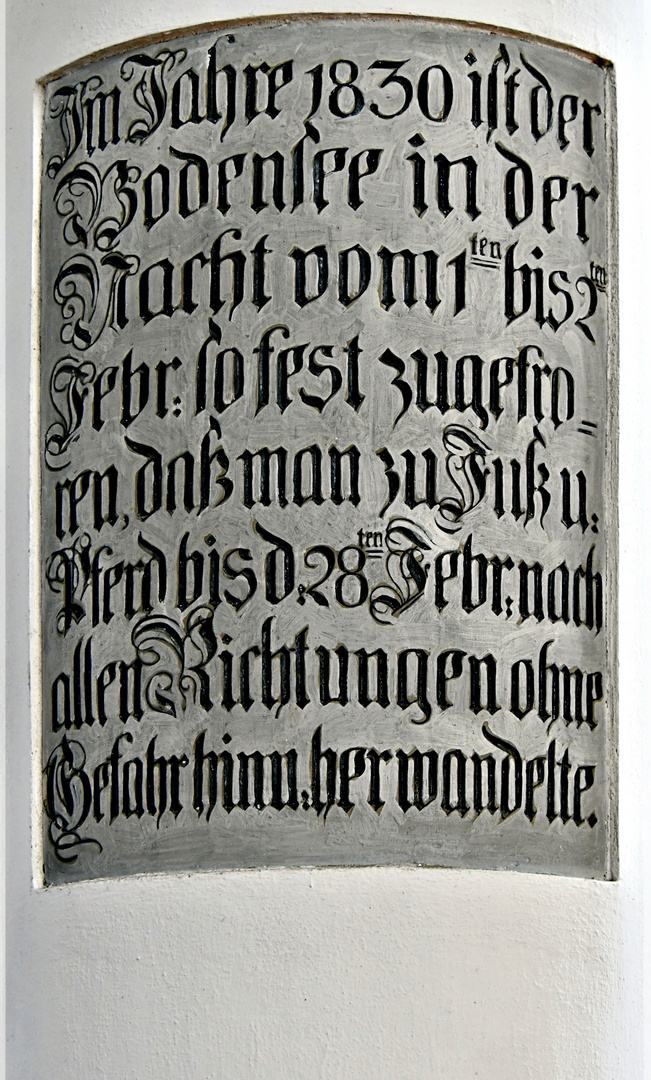 Im Jahre 1830 ist der
Bodensee in der
Nacht vom 1ten bis 2ten
Febr: so fest zugefro=
ren, daß man zu Fuß u:
Pferd bis d: 28ten Febr: nach
allen Richtungen ohne
Gefahr hin u: her wandelte.